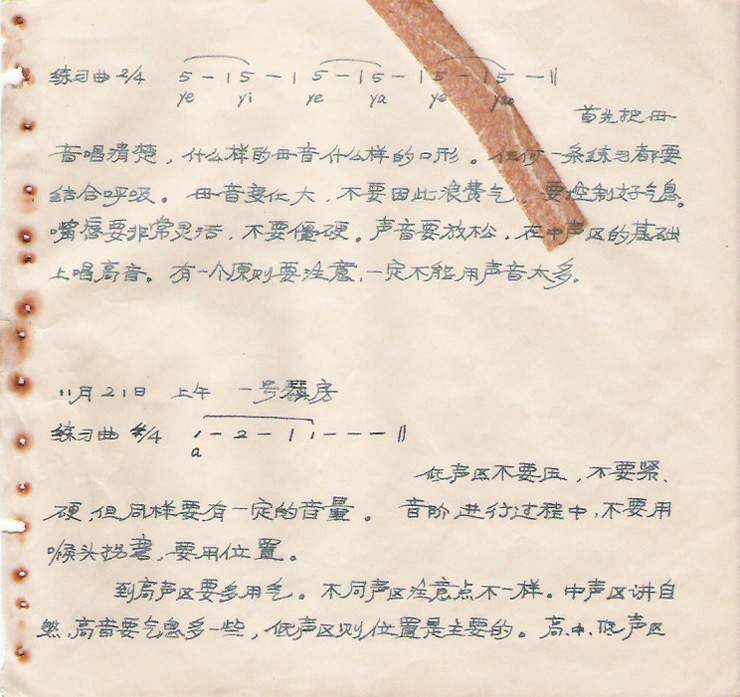 练习曲 2/4 5 - | 5 - | 5 - | 5 - | 5 - | 5 - ||
ye yi ye ya ye yao
首先把母
音唱清楚，什么样的母音什么样的口形。任何一条练习都要
结合呼吸。母音变化大，不要因此浪费气，要控制好气息。
嘴唇要非常灵活，不要僵硬。声音要放松，在中声区的基础
上唱高音。有一个原则要注意，一定不能用声音太多。
11月21日 上午 一号琴房
练习曲 4/4 1 - 2 - | 1 - - - ||
a
低声区不要压，不要紧、
硬，但同样要有一定的音量。音阶进行过程中，不要用
喉头拐着，要用位置。
到高声区要多用气。不同声区注意点不一样。中声区讲自
然，高音要气息多一些，低声区则位置是主要的。高、中、低声区